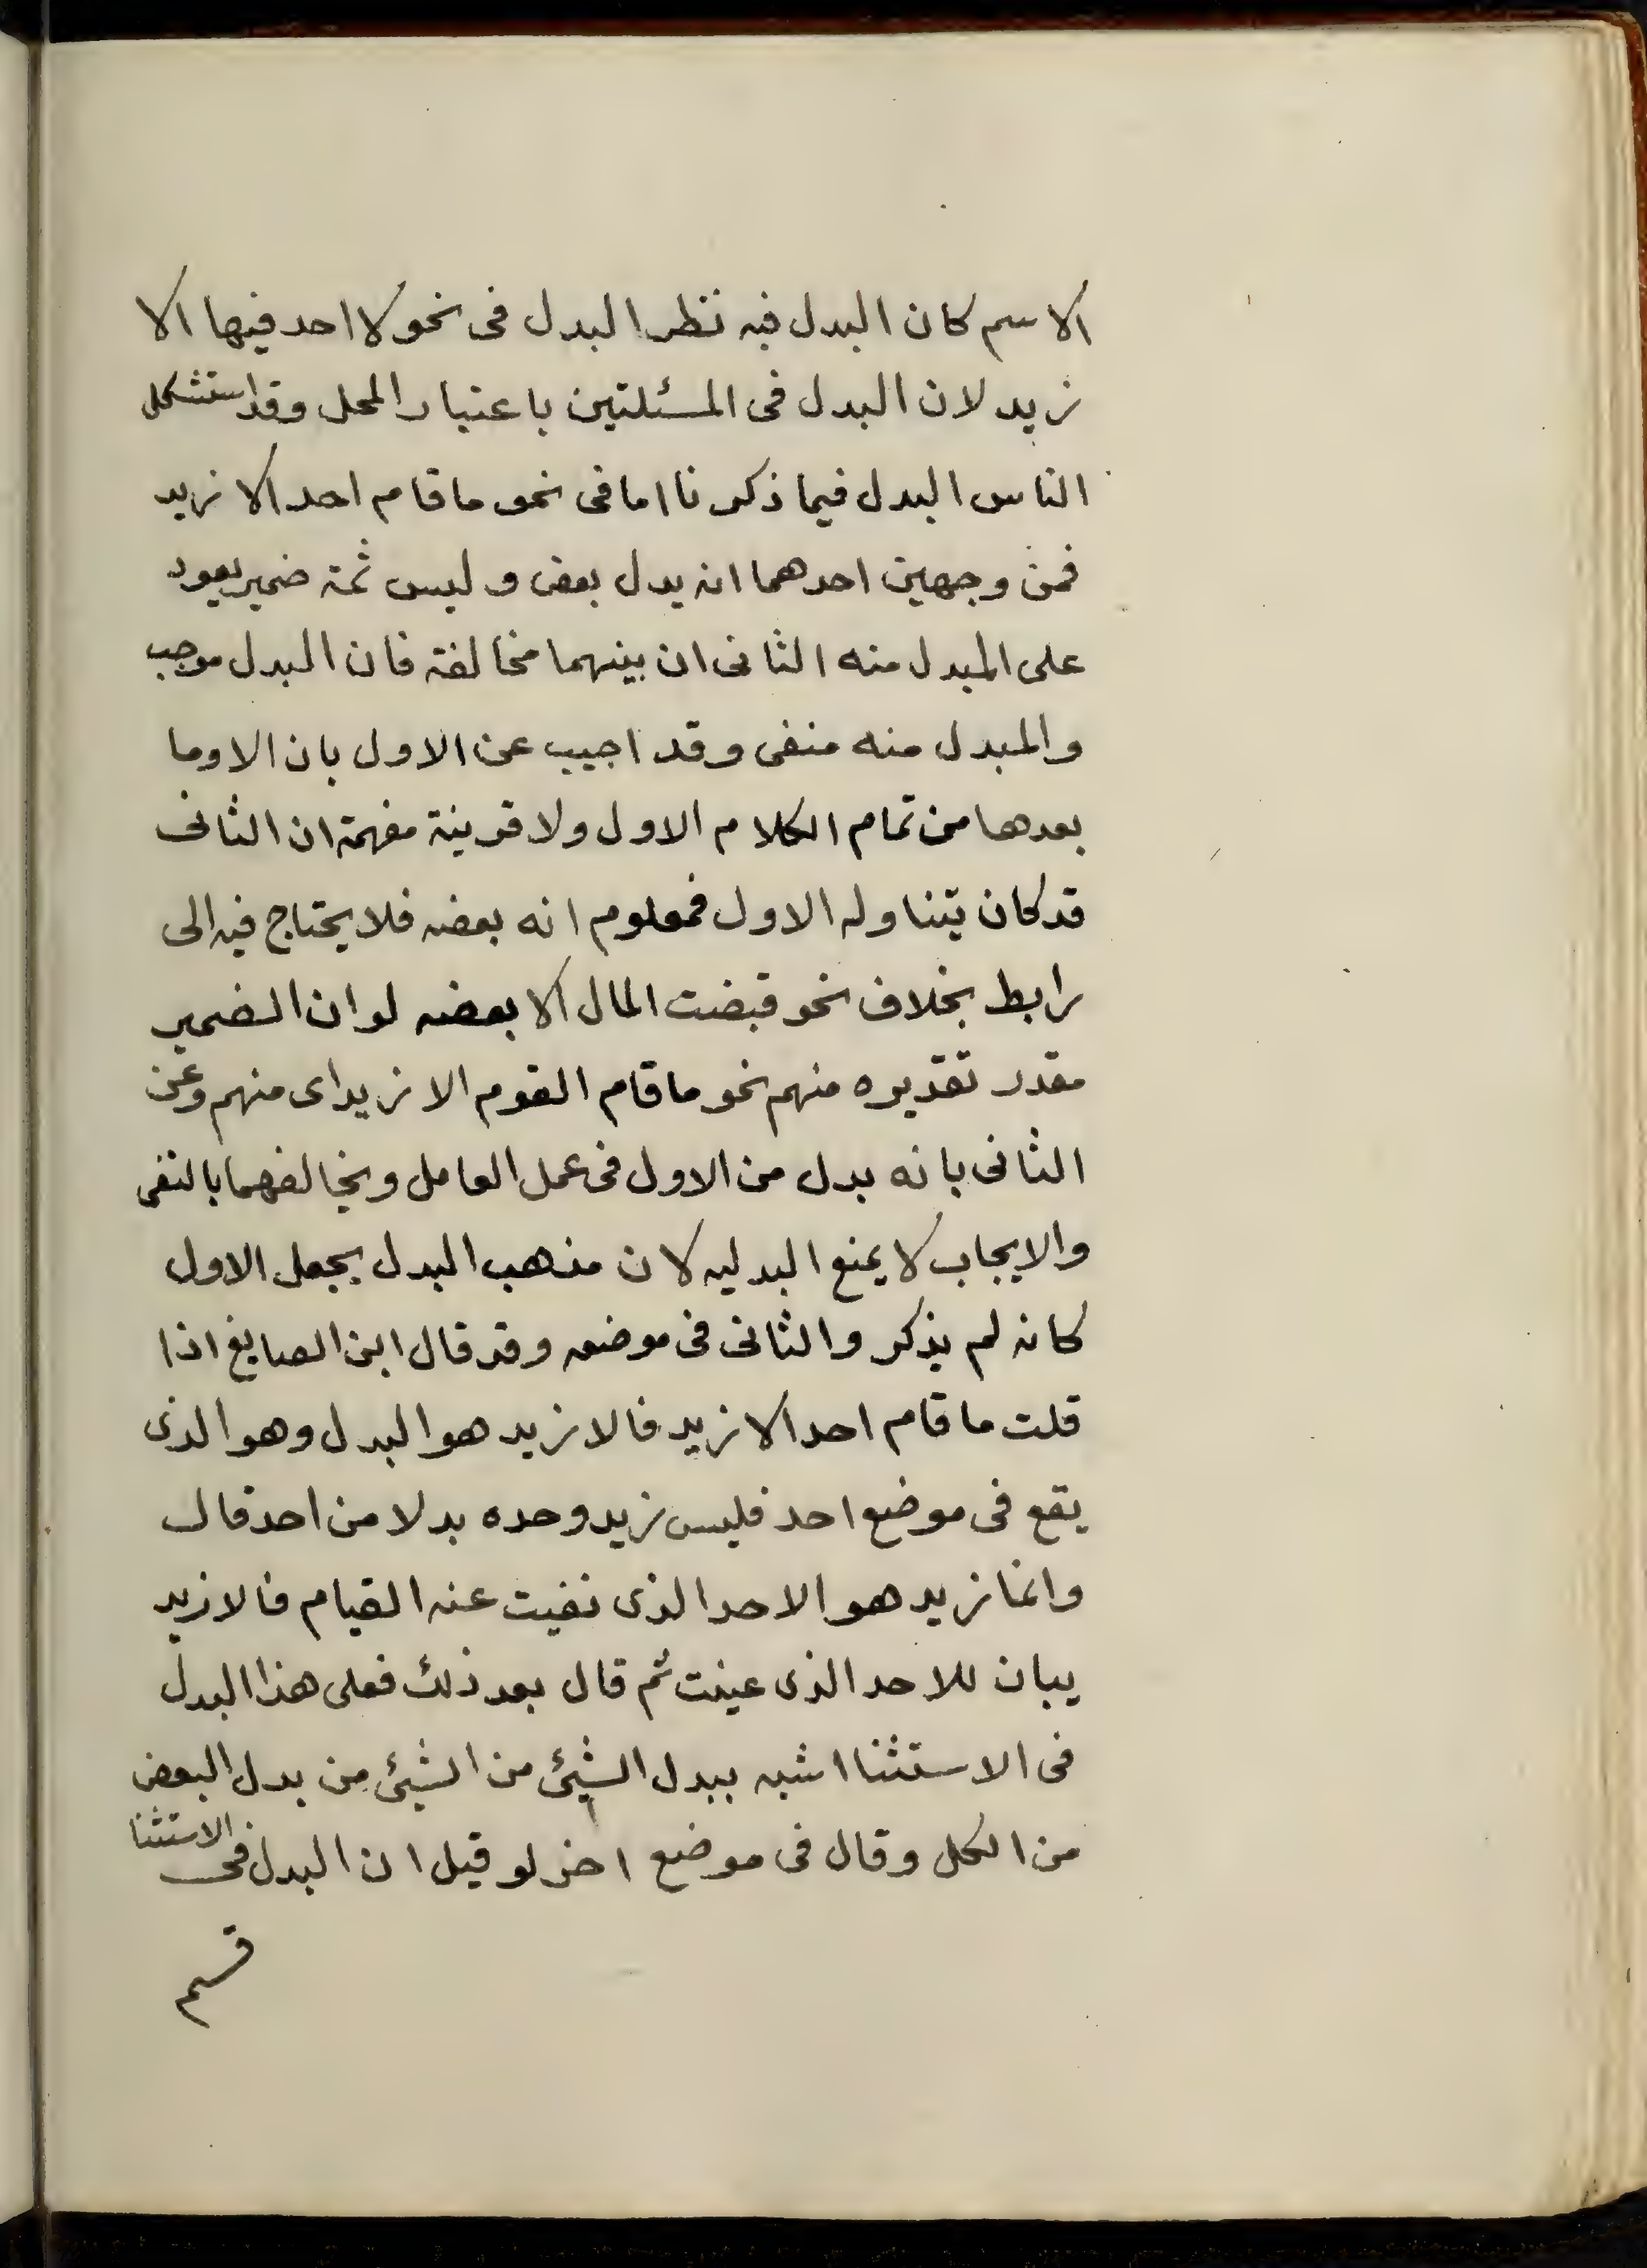 الاسم كان البدل فيه نظر البدل فى نحو لا احد فيها الا
زيد لان البدل فى المسئلتين باعتبار المحل وقد استشكل
الناس البدل فيما ذكرنا اما فى نحو ما قام احد الا زيد
فمن وجهين احدهما انه بدل بعض وليس ثمة ضمير يعود
على المبدل منه الثانى ان بينهما مخالفة فان البدل موجب
والمبدل منه منفى وقد اجيب عن الاول بان الا وما
بعدها من تمام الكلام الاول ولا قرينة مفهمة ان الثانى
قد كان يتناوله الاول فمعلوم انه بعضه فلا يحتاج فيه الى
رابط بخلاف نحو قبضت المال الا بعضه لو ان الضمير
مقدر تقديره منهم نحو ما قام القوم الا زيد اى منهم وعن
الثانى بانه بدل من الاول فى عمل العامل وتخالفهما بالنفى
والايجاب لا يمنع البدليه لان مذهب البدل يجعل الاول
كانه لم يذكر والثانى فى موضعه وقد قال ابن الصايغ اذا
قلت ما قام احد الا زيد فالا زيد هو البدل وهو الذى
يقع فى موضع احد فليس زيد وحده بدلا من احد قال
وانما زيد هو الاحد الذى نفيت عنه القيام فالا زيد
بيان للاحد الذى عينت ثم قال بعد ذلك فعلى هذا البدل
فى الاستثنا اشبه ببدل الشيئ من الشيئ من بدل البعض
من الكل وقال فى موضع اخر لو قيل ان البدل فى الاستثنا
قسم